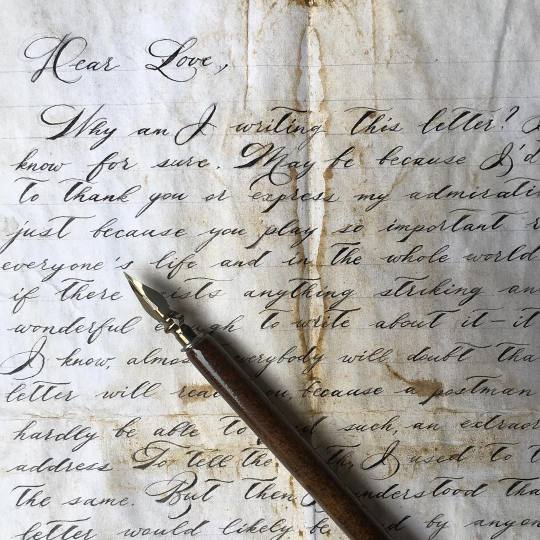 Dear Love,
Why am I writing this letter? I
know for sure. May be because I'd
to thank you or express my admirati
just because you play so important r
everyone's life and in the whole world
if there ists anything striking an
wonderful enough to write about it – it
I know, almos verybody will doubt tha
letter will reac you, because a postman
hardly be able to d such, an extraor
address To tell the I used to t
the same. But then understood tha
letter would likely be d by anyon